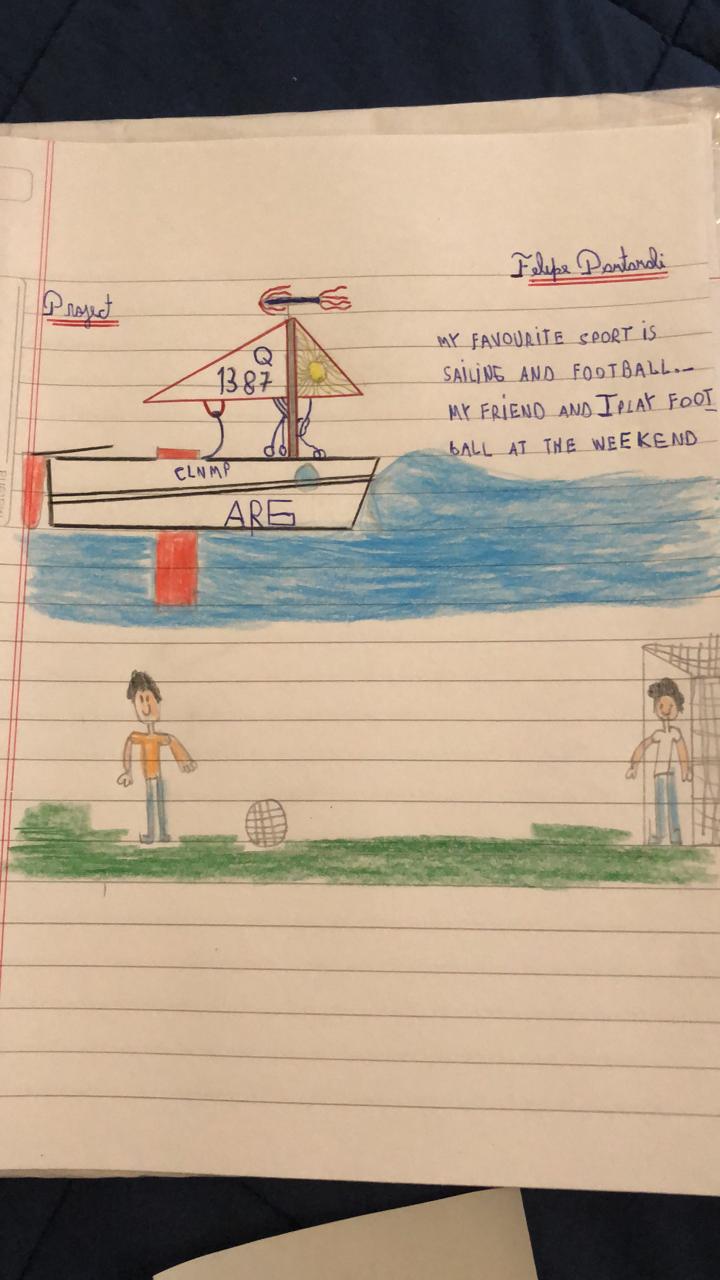 Felipe Pantaroli
Project
MY FAVOURITE SPORT IS
SAiLiNG AND FOOTBALL..-
MY FRiEND AND I PLAY FOOT
BALL AT THE WEEKEND
Q
1387
CLNMP
ARG